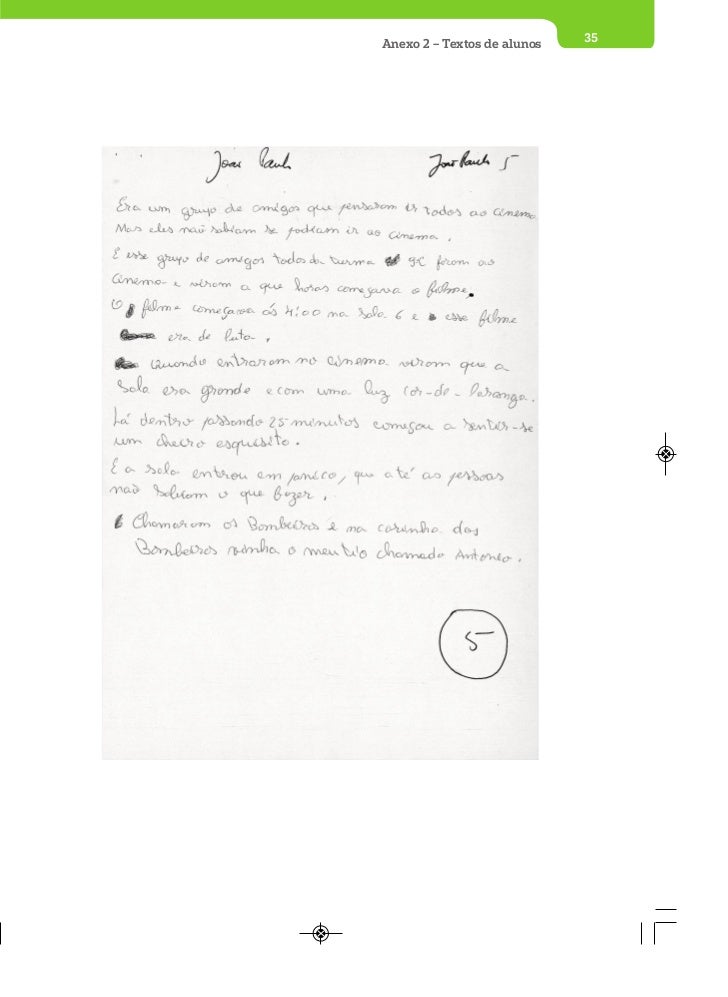 Anexo 2 – Textos de alunos
35
João Paulo
João Paulo 5
Era um grupo de amigos que pensaram ir todos ao cinema
Mas eles não sabiam se podiam ir ao cinema.
E esse grupo de amigos todos da turma 9C foram ao
cinema e viram a que horas começava o filme.
O filme começava ás 4:00 na sala 6 e esse filme
era de luta.
Quando entraram no cinema viram que a
sala era grande e com uma luz cor-de-laranga.
Lá dentro passando 25 minutos começou a sentir-se
um cheiro esquesito.
E a sala entrou em panico, que até as pessoas
não sabiam o que fazer.
Chamaram os Bombeiros e na carinha dos
Bombeiros vinha o meu tio chamado Antoneo.
5